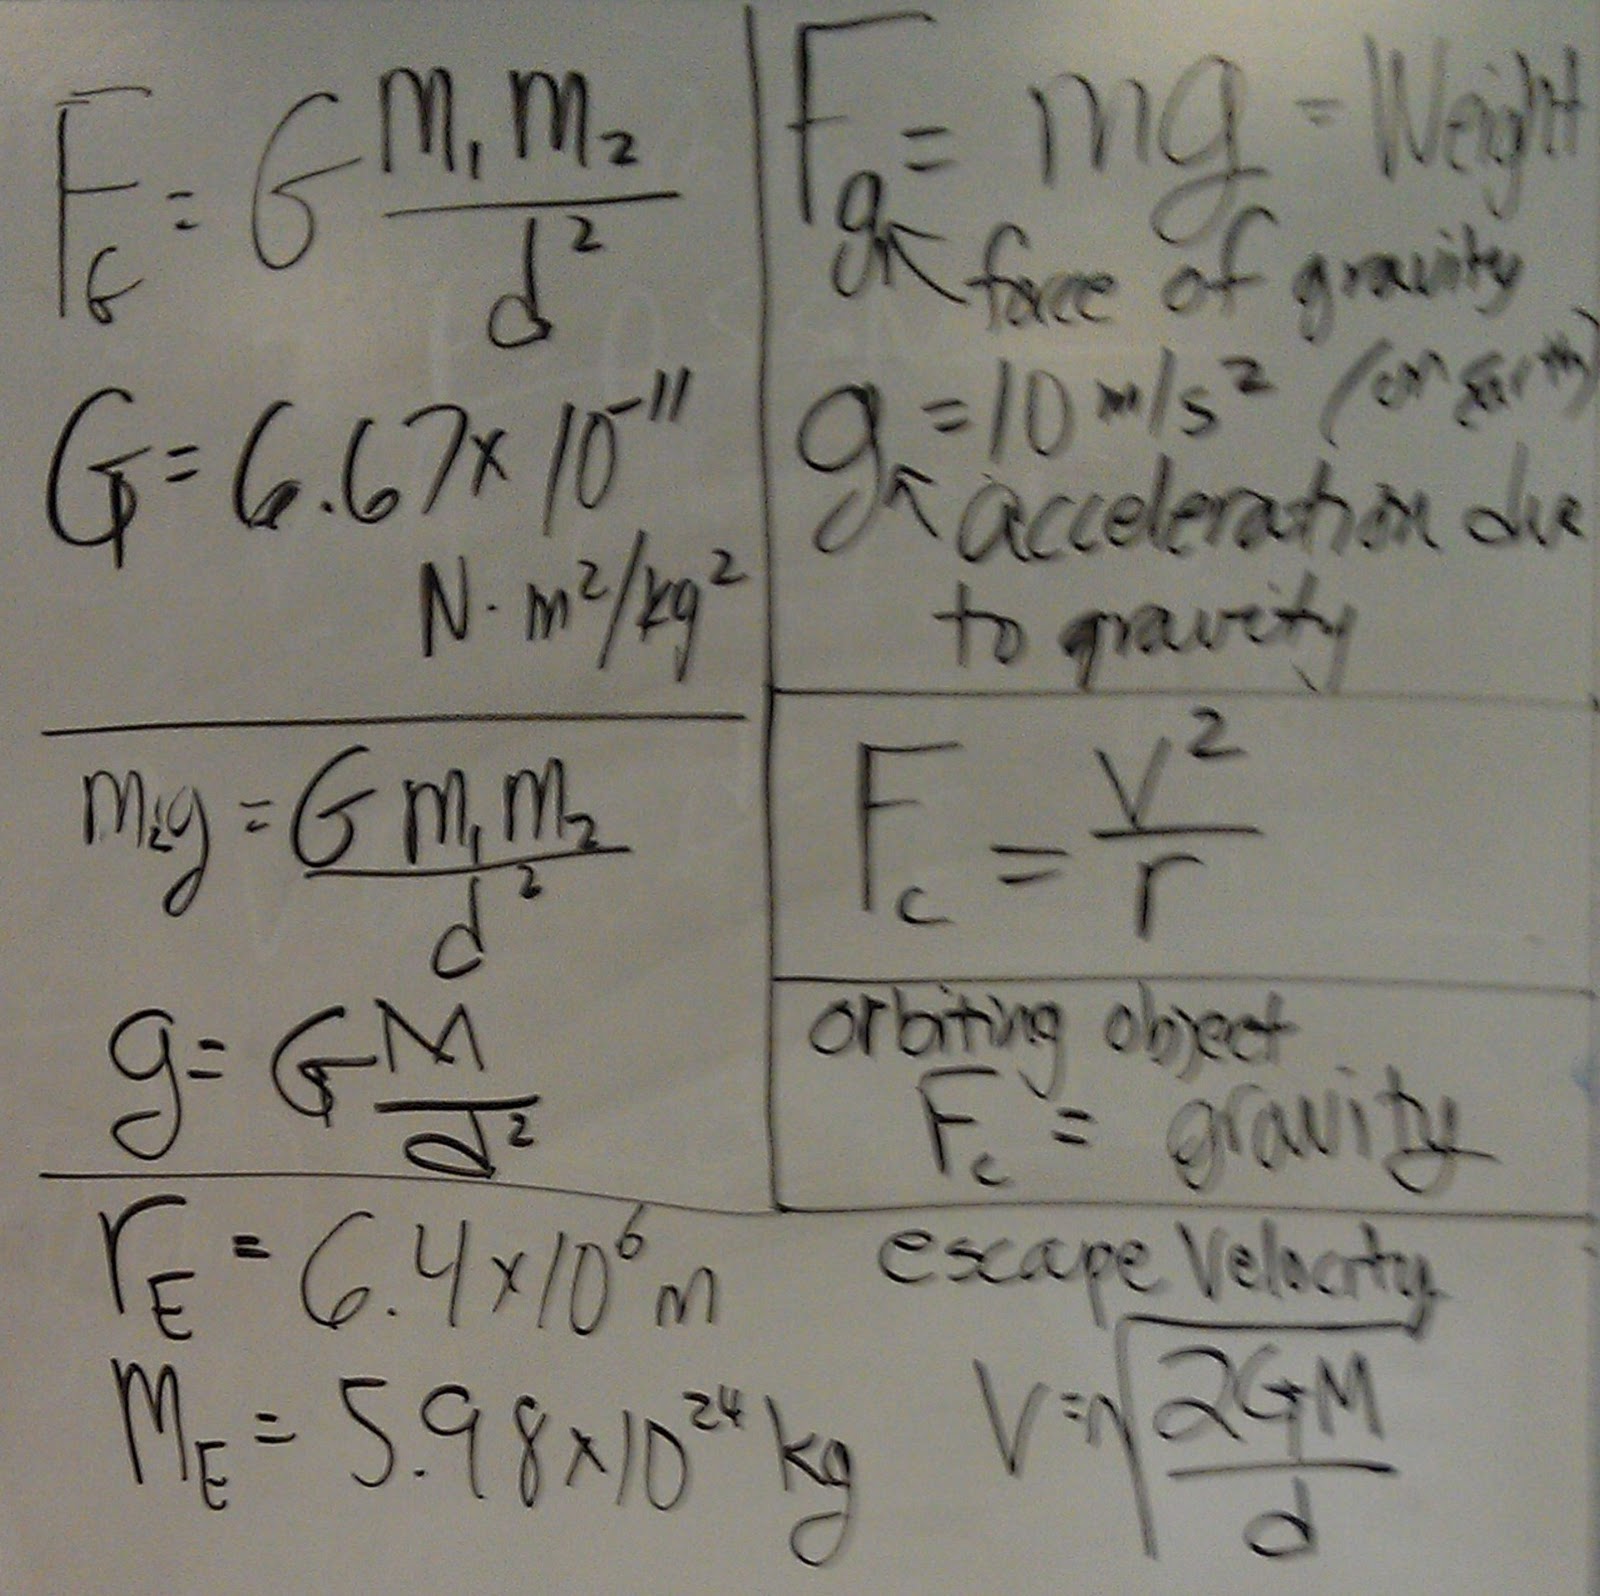 F_G = G m₁m₂/d²
G = 6.67 × 10⁻¹¹
N·m²/kg²
m₂g = G m₁m₂/d²
g = G M/d²
r_E = 6.4 × 10⁶ m
m_E = 5.98 × 10²⁴ kg
F_g = mg = Weight
force of gravity
g = 10 m/s² (on Earth)
acceleration due
to gravity
F_c = v²/r
orbiting object
F_c = gravity
escape velocity
V = √(2GM/d)